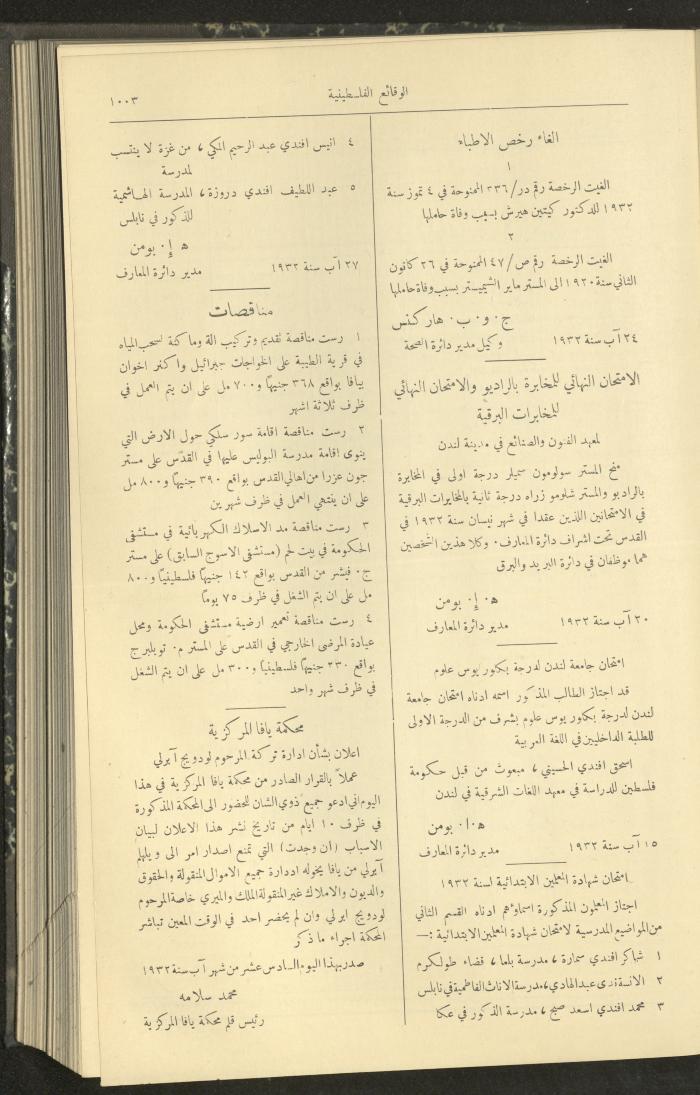 الوقائع الفلسطينية
١٠٠٣
الغاء رخص الاطباء
١
الغيت الرخصة رقم در/٣٣٦ الممنوحة في ٤ تموز سنة
١٩٣٢ للدكتور كيتين هيرش بسبب وفاة حاملها
٢
الغيت الرخصة رقم ص/٤٧ الممنوحة في ٢٦ كانون
الثاني سنة ١٩٢٠ الى المستر ماير الشيميستر بسبب وفاة حاملها
ج٠ و٠ ب٠ هاركنس
٢٤ آب سنة ١٩٣٢ وكيل مدير دائرة الصحة
الامتحان النهائي للمخابرة بالراديو والامتحان النهائي
للمخابرات البرقية
لمعهد الفنون والصنائع في مدينة لندن
منح المستر سولومون سميلر درجة اولى في المخابرة
بالراديو والمستر شلومو زراه درجة ثانية بالمخابرات البرقية
في الامتحانين اللذين عقدا في شهر نيسان سنة ١٩٣٢ في
القدس تحت اشراف دائرة المعارف٠ وكلا هذين الشخصين
هما موظفان في دائرة البريد والبرق
ه٠ إ٠ بومن
٢٠ آب سنة ١٩٣٢ مدير دائرة المعارف
امتحان جامعة لندن لدرجة بكلوريوس علوم
قد اجتاز الطالب المذكور اسمه ادناه امتحان جامعة
لندن لدرجة بكلوريوس علوم بشرف من الدرجة الاولى
للطلبة الداخليين في اللغة العربية
اسحق افندي الحسيني، مبعوث من قبل حكومة
فلسطين للدراسة في معهد اللغات الشرقية في لندن
ه٠ا٠ بومن
١٥ آب سنة ١٩٣٢ مدير دائرة المعارف
امتحان شهادة المعلمين الابتدائية لسنة ١٩٣٢
اجتاز المعلمون المذكورة اسماؤهم ادناه القسم الثاني
من المواضيع المدرسية لامتحان شهادة المعلمين الابتدائية :—
١ شاكر افندي سمارة، مدرسة بلعا، قضاء طولكرم
٢ الانسة ندى عبدالهادي، مدرسة الاناث الفاطمية في نابلس
٣ محمد افندي اسعد صبح، مدرسة الذكور في عكا
٤ انيس افندي عبد الرحيم المكي، من غزة لا ينتسب
لمدرسة
٥ عبد اللطيف افندي دروزة، المدرسة الهاشمية
للذكور في نابلس
ه إ٠ بومن
٢٧ آب سنة ١٩٣٢ مدير دائرة المعارف
مناقصات
١ رست مناقصة تقديم وتركيب الة وماكنة لسحب المياه
في قرية الطيبة على الخواجات جبرائيل واكنر اخوان
بيافا بواقع ٣٦٨ جنيهًا و٧٠٠ مل على ان يتم العمل في
ظرف ثلاثة اشهر
٢ رست مناقصة اقامة سور سلكي حول الارض التي
ينوى اقامة مدرسة البوليس عليها في القدس على مستر
جون عزرا من اهالي القدس بواقع ٣٩٠ جنيهًا و٨٠٠ مل
على ان ينتهي العمل في ظرف شهرين
٣ رست مناقصة مد الاسلاك الكهربائية في مستشفى
الحكومة في بيت لحم (مستشفى الاسوج السابق) على مستر
ج٠ فيشر من القدس بواقع ١٤٢ جنيهًا فلسطينيًا و٨٠٠
مل على ان يتم الشغل في ظرف ٧٥ يومًا
٤ رست مناقصة تعمير ارضية مستشفى الحكومة ومحل
عيادة المرضى الخارجي في القدس على المستر م٠ تويلبرج
بواقع ٢٣٠ جنيهًا فلسطينيًا و٣٠٠ مل على ان يتم الشغل
في ظرف شهر واحد
محكمة يافا المركزية
اعلان بشأن ادارة تركة المرحوم لودويج آبرلي
عملاً بالقرار الصادر من محكمة يافا المركزية في هذا
اليوم اني ادعو جميع ذوي الشان للحضور الى المحكمة المذكورة
في ظرف ١٠ ايام من تاريخ نشر هذا الاعلان لبيان
الاسباب (ان وجدت) التي تمنع اصدار امر الى ويلهلم
آبرلي من يافا يخوله اددارة جميع الاموال المنقولة والحقوق
والديون والاملاك غير المنقولة الملك والميري خاصة المرحوم
لودويج ابرلي وان لم يحضر احد في الوقت المعين تباشر
المحكمة اجراء ما ذكر
صدر بهذا اليوم السادس عشر من شهر آب سنة ١٩٣٢
محمد سلامه
رئيس قلم محكمة يافا المركزية